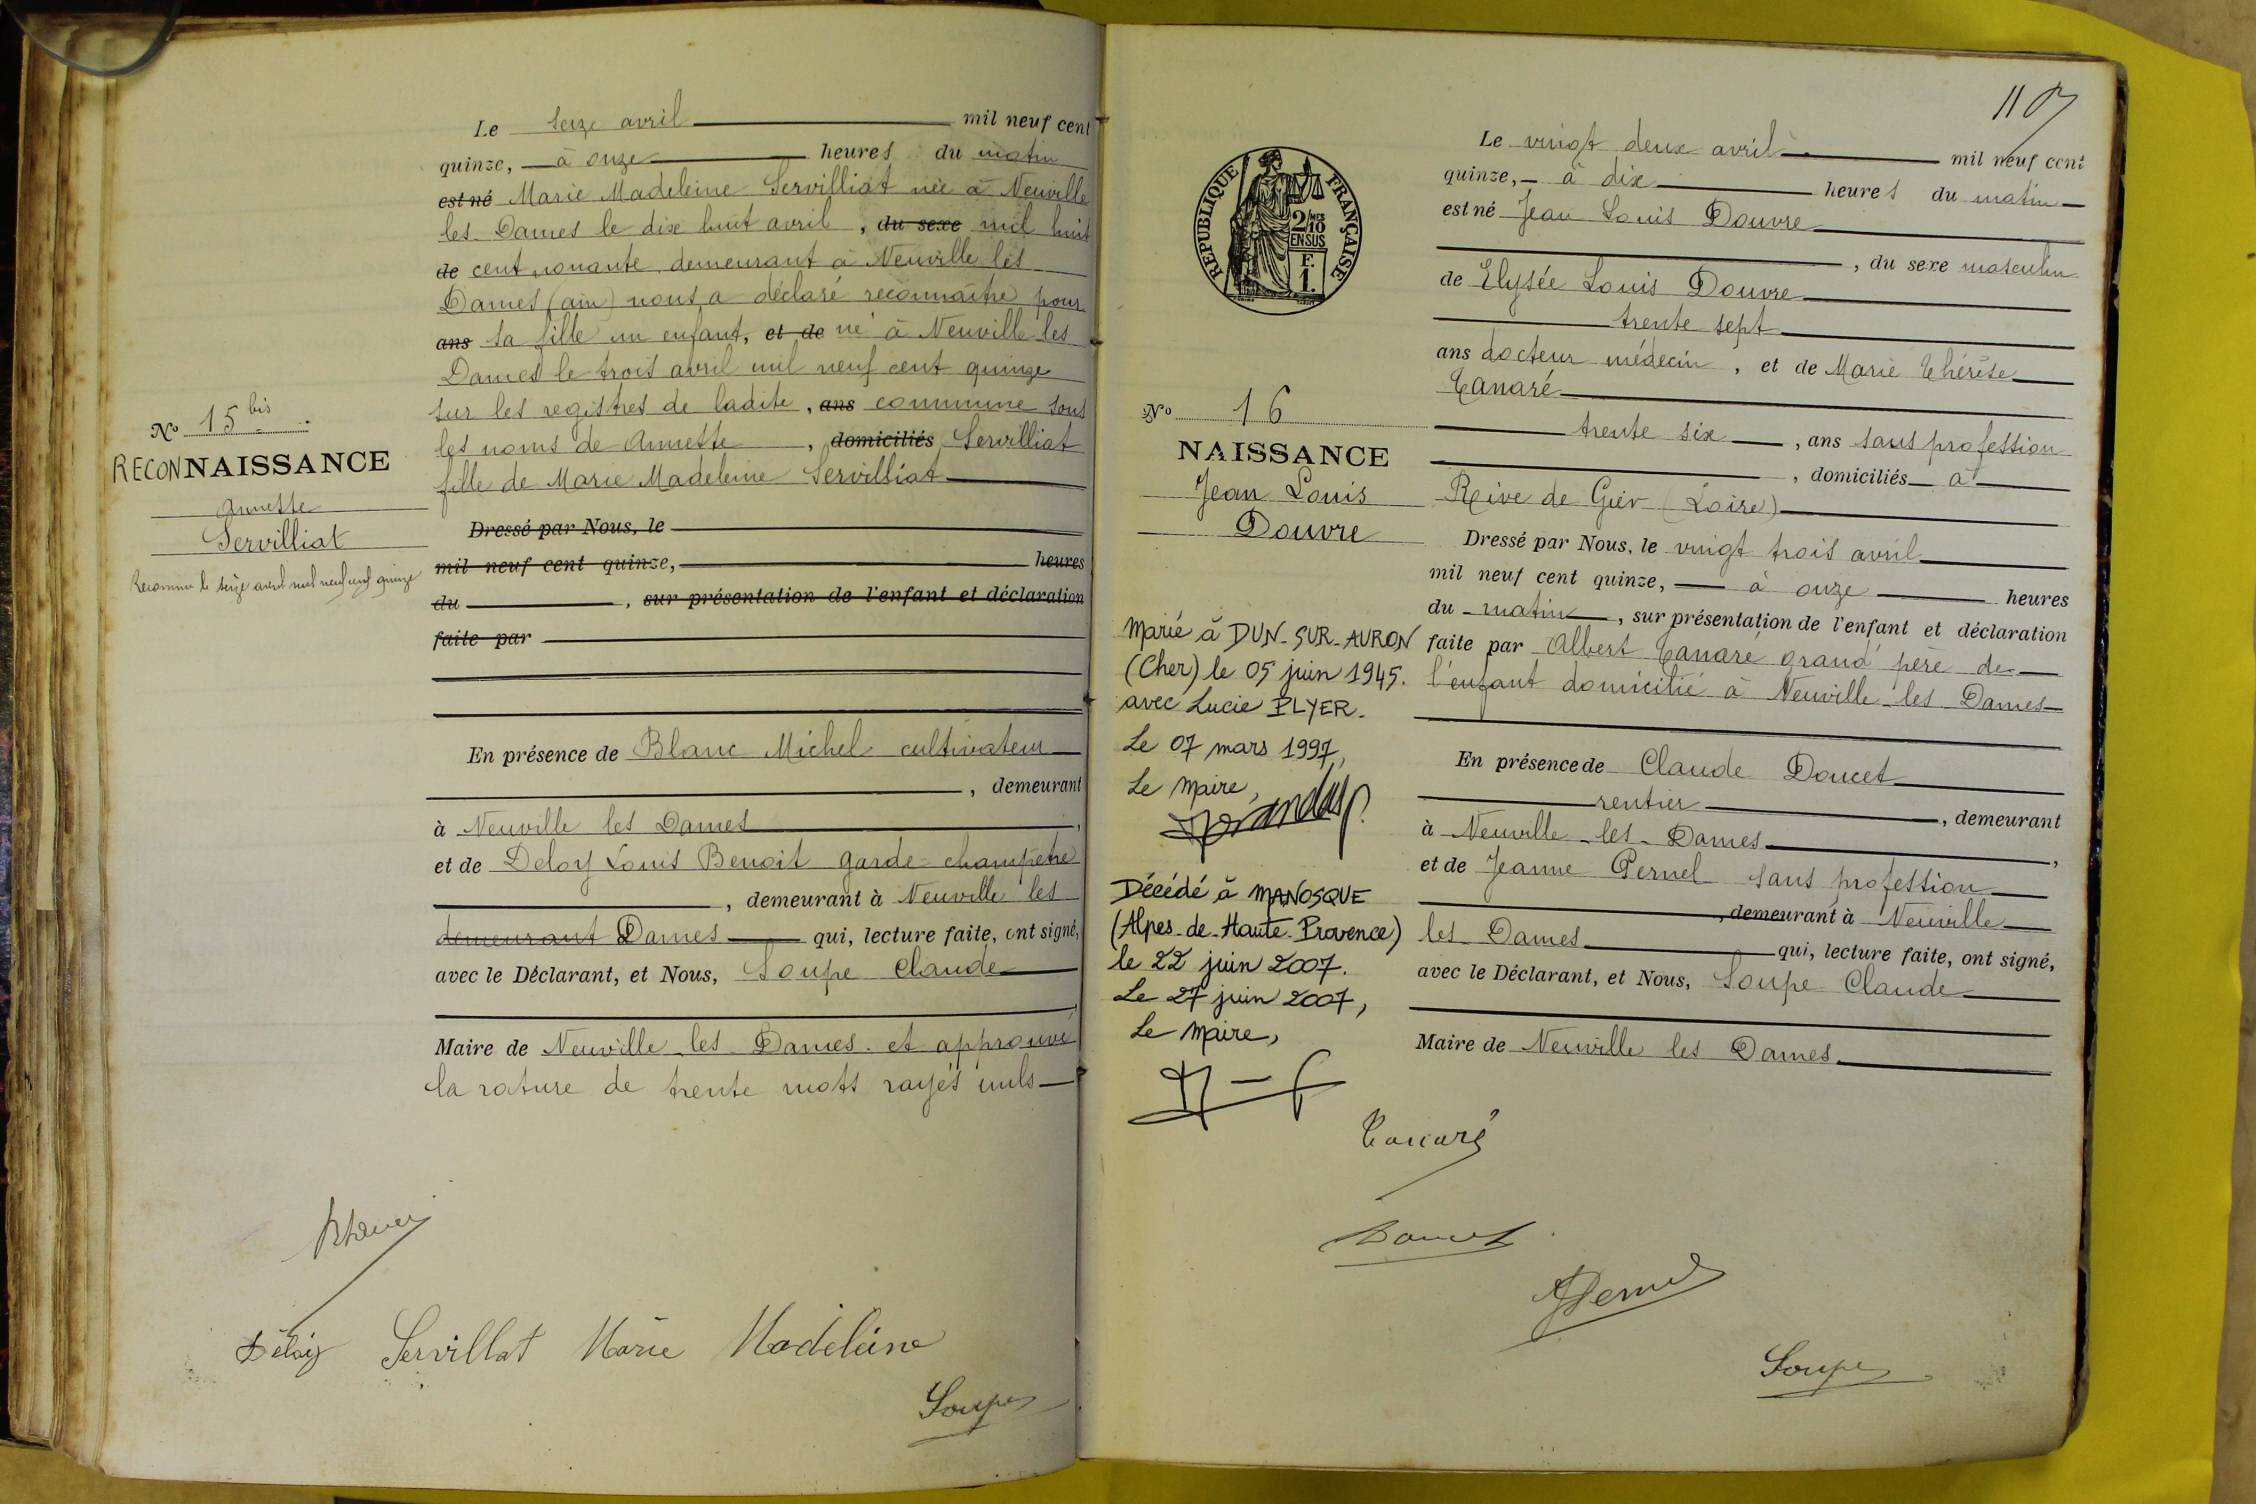 Le seize avril mil neuf cent
quinze, à onze heures du matin
est né Marie Madeleine Servilliat née à Neuville
les Dames le dix huit avril, du sexe mil huit
de cent nonante, demeurant à Neuville les
Dames (ain) nous a déclaré reconnaître pour
ans sa fille un enfant, et de né à Neuville les
Dames le trois avril mil neuf cent quinze
sur les registres de ladite, ans commune sous
les noms de Annette, domiciliés Servilliat
fille de Marie Madeleine Servilliat
No 15 bis.
RECONNAISSANCE
Annette
Servilliat
Reconnu le seize avril mil neuf cent quinze
Dressé par Nous, le
mil neuf cent quinze, heures
du , sur présentation de l'enfant et déclaration
faite par
En présence de Blanc Michel cultivateur
, demeurant
à Neuville les Dames,
et de Deloy Louis Benoit garde-champêtre
, demeurant à Neuville les
demeurant Dames qui, lecture faite, ont signé,
avec le Déclarant, et Nous, Soupe Claude
Maire de Neuville les Dames. et approuvé
la rature de trente mots rayés nuls
Déloy Servillat Marie Madeleine
Soupe
110
RÉPUBLIQUE FRANÇAISE
2/10
EN SUS
F.
1.
No 16
NAISSANCE
Jean Louis
Douvre
Marié à DUN-SUR-AURON
(Cher) le 05 juin 1945.
avec Lucie PLYER.
Le 07 mars 1997,
Le Maire,
Décédé à MANOSQUE
(Alpes-de-Haute-Provence)
le 22 juin 2007.
Le 27 juin 2007,
Le Maire,
Le vingt deux avril mil neuf cent
quinze, à dix heures du matin
est né Jean Louis Douvre
, du sexe masculin
de Elysée Louis Douvre
trente sept
ans docteur médecin, et de Marie Thérèse
Canaré
trente six, ans sans profession
, domiciliés à
Reive de Gier (Loire)
Dressé par Nous, le vingt trois avril
mil neuf cent quinze, à onze heures
du matin, sur présentation de l'enfant et déclaration
faite par Albert Canaré grand père de
l'enfant domicilié à Neuville les Dames
En présence de Claude Doucet
rentier, demeurant
à Neuville-les-Dames,
et de Jeanne Pernel sans profession
, demeurant à Neuville
les Dames qui, lecture faite, ont signé,
avec le Déclarant, et Nous, Soupe Claude
Maire de Neuville les Dames
Canaré
Doucet
Pernel
Soupe